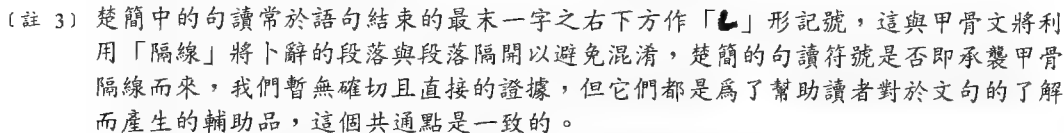 〔註 3〕楚簡中的句讀常於語句結束的最末一字之右下方作「L」形記號，這與甲骨文將利
用「隔線」將卜辭的段落與段落隔開以避免混淆，楚簡的句讀符號是否即承襲甲骨
隔線而來，我們暫無確切且直接的證據，但它們都是爲了幫助讀者對於文句的了解
而產生的輔助品，這個共通點是一致的。